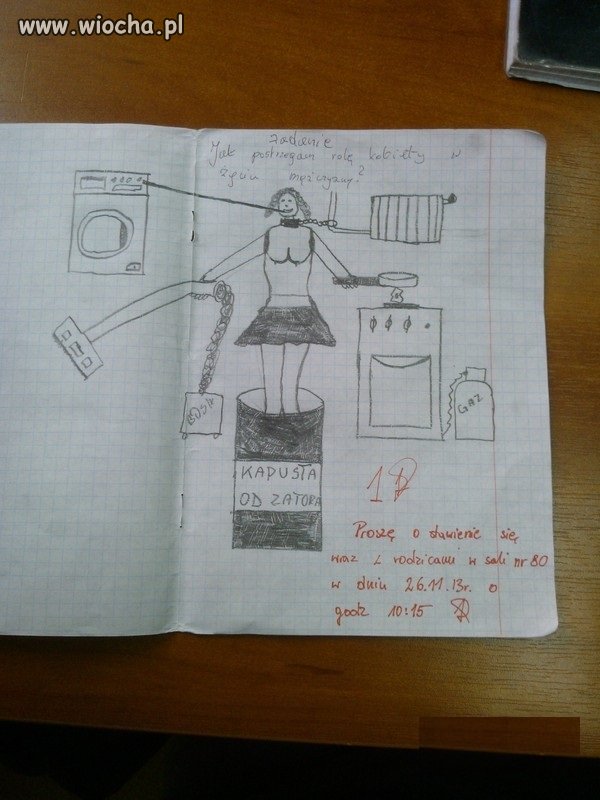 www.wiocha.pl
zadanie
Jak postrzegam rolę kobiety w
życiu mężczyzny?
BOSH
GAZ
KAPUSTA
OD ZATORA
1
Proszę o stawienie się
wraz z rodzicami w sali nr 80
w dniu 26.11.13r. o
godz 10:15